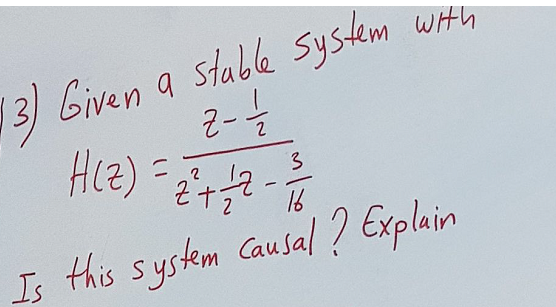 13) Given a stable system with
H(z) = (z - 1/2) / (z² + 1/2 z - 3/16)
Is this system causal? Explain